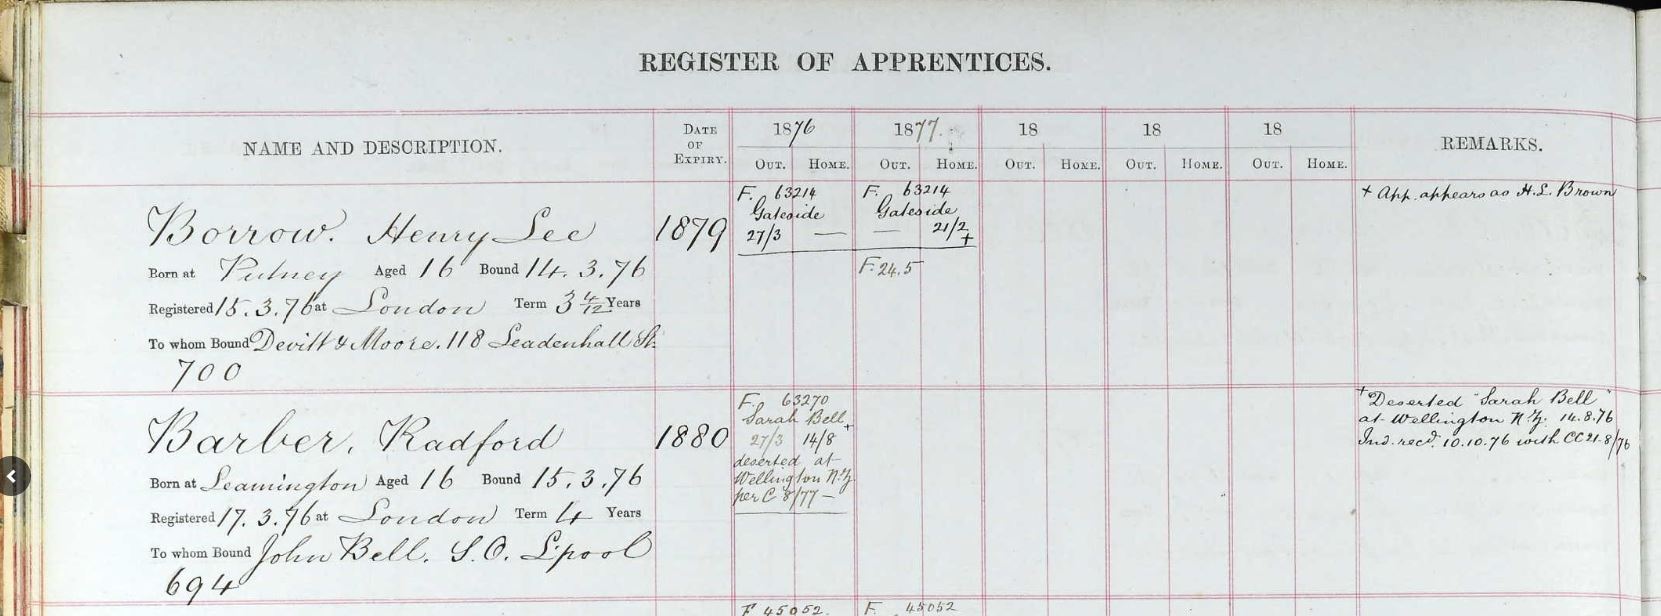 REGISTER OF APPRENTICES.
NAME AND DESCRIPTION.
DATE OF EXPIRY.
1876
OUT. HOME.
1877.
OUT. HOME.
18
OUT. HOME.
18
OUT. HOME.
18
OUT. HOME.
REMARKS.
Borrow. Henry Lee
1879
F. 63214
Gateside
27/3 —
F. 63214
Gateside
— 21/2 +
F. 24.5
+ App. appears as H.L. Brown
Born at Putney Aged 16 Bound 14.3.76
Registered 15.3.76 at London Term 3 4/12 Years
To whom Bound Devitt & Moore. 118 Leadenhall St.
700
Barber, Radford
1880
F. 63270
Sarah Bell +
27/3 14/8
deserted at
Wellington N.Z.
per C 8/77 —
+ Deserted "Sarah Bell"
at Wellington N.Z. 14.8.76
Ind. recd. 10.10.76 with CC 21.8/76
Born at Leamington Aged 16 Bound 15.3.76
Registered 17.3.76 at London Term 4 Years
To whom Bound John Bell. S.O. L'pool
694
F 45052. F. 45052